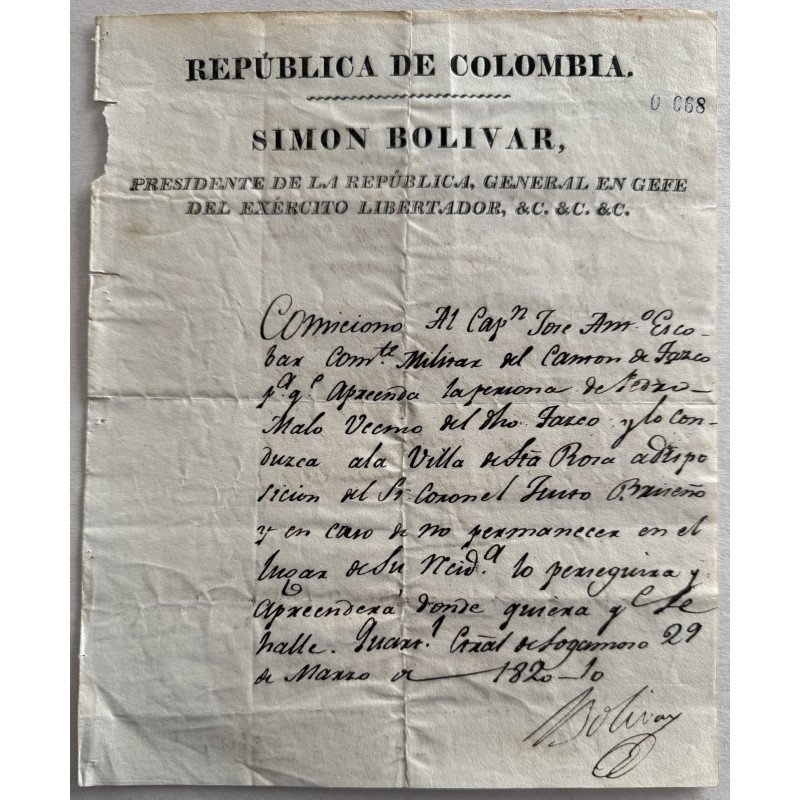 REPÚBLICA DE COLOMBIA.
0 068
SIMON BOLIVAR,
PRESIDENTE DE LA REPÚBLICA, GENERAL EN GEFE
DEL EXÉRCITO LIBERTADOR, &C. &C. &C.
Comiciono Al Capn Jose Anto Esco-
bar Comte Militar del Canton de Tazco
pa qe Aprenda la persona de Pedro
Malo Vecino del dho Tazco y lo con-
duzca ala Villa de Sta Rosa a dispo
sicion del Sr Coronel Justo Briseño
y en caso de no permanecer en el
lugar de Su Recida lo perseguira y
Aprenderá donde quiera qe Se
halle. Quartl Gral de Sogamoso 29
de Marzo de 1820-10
Bolivar